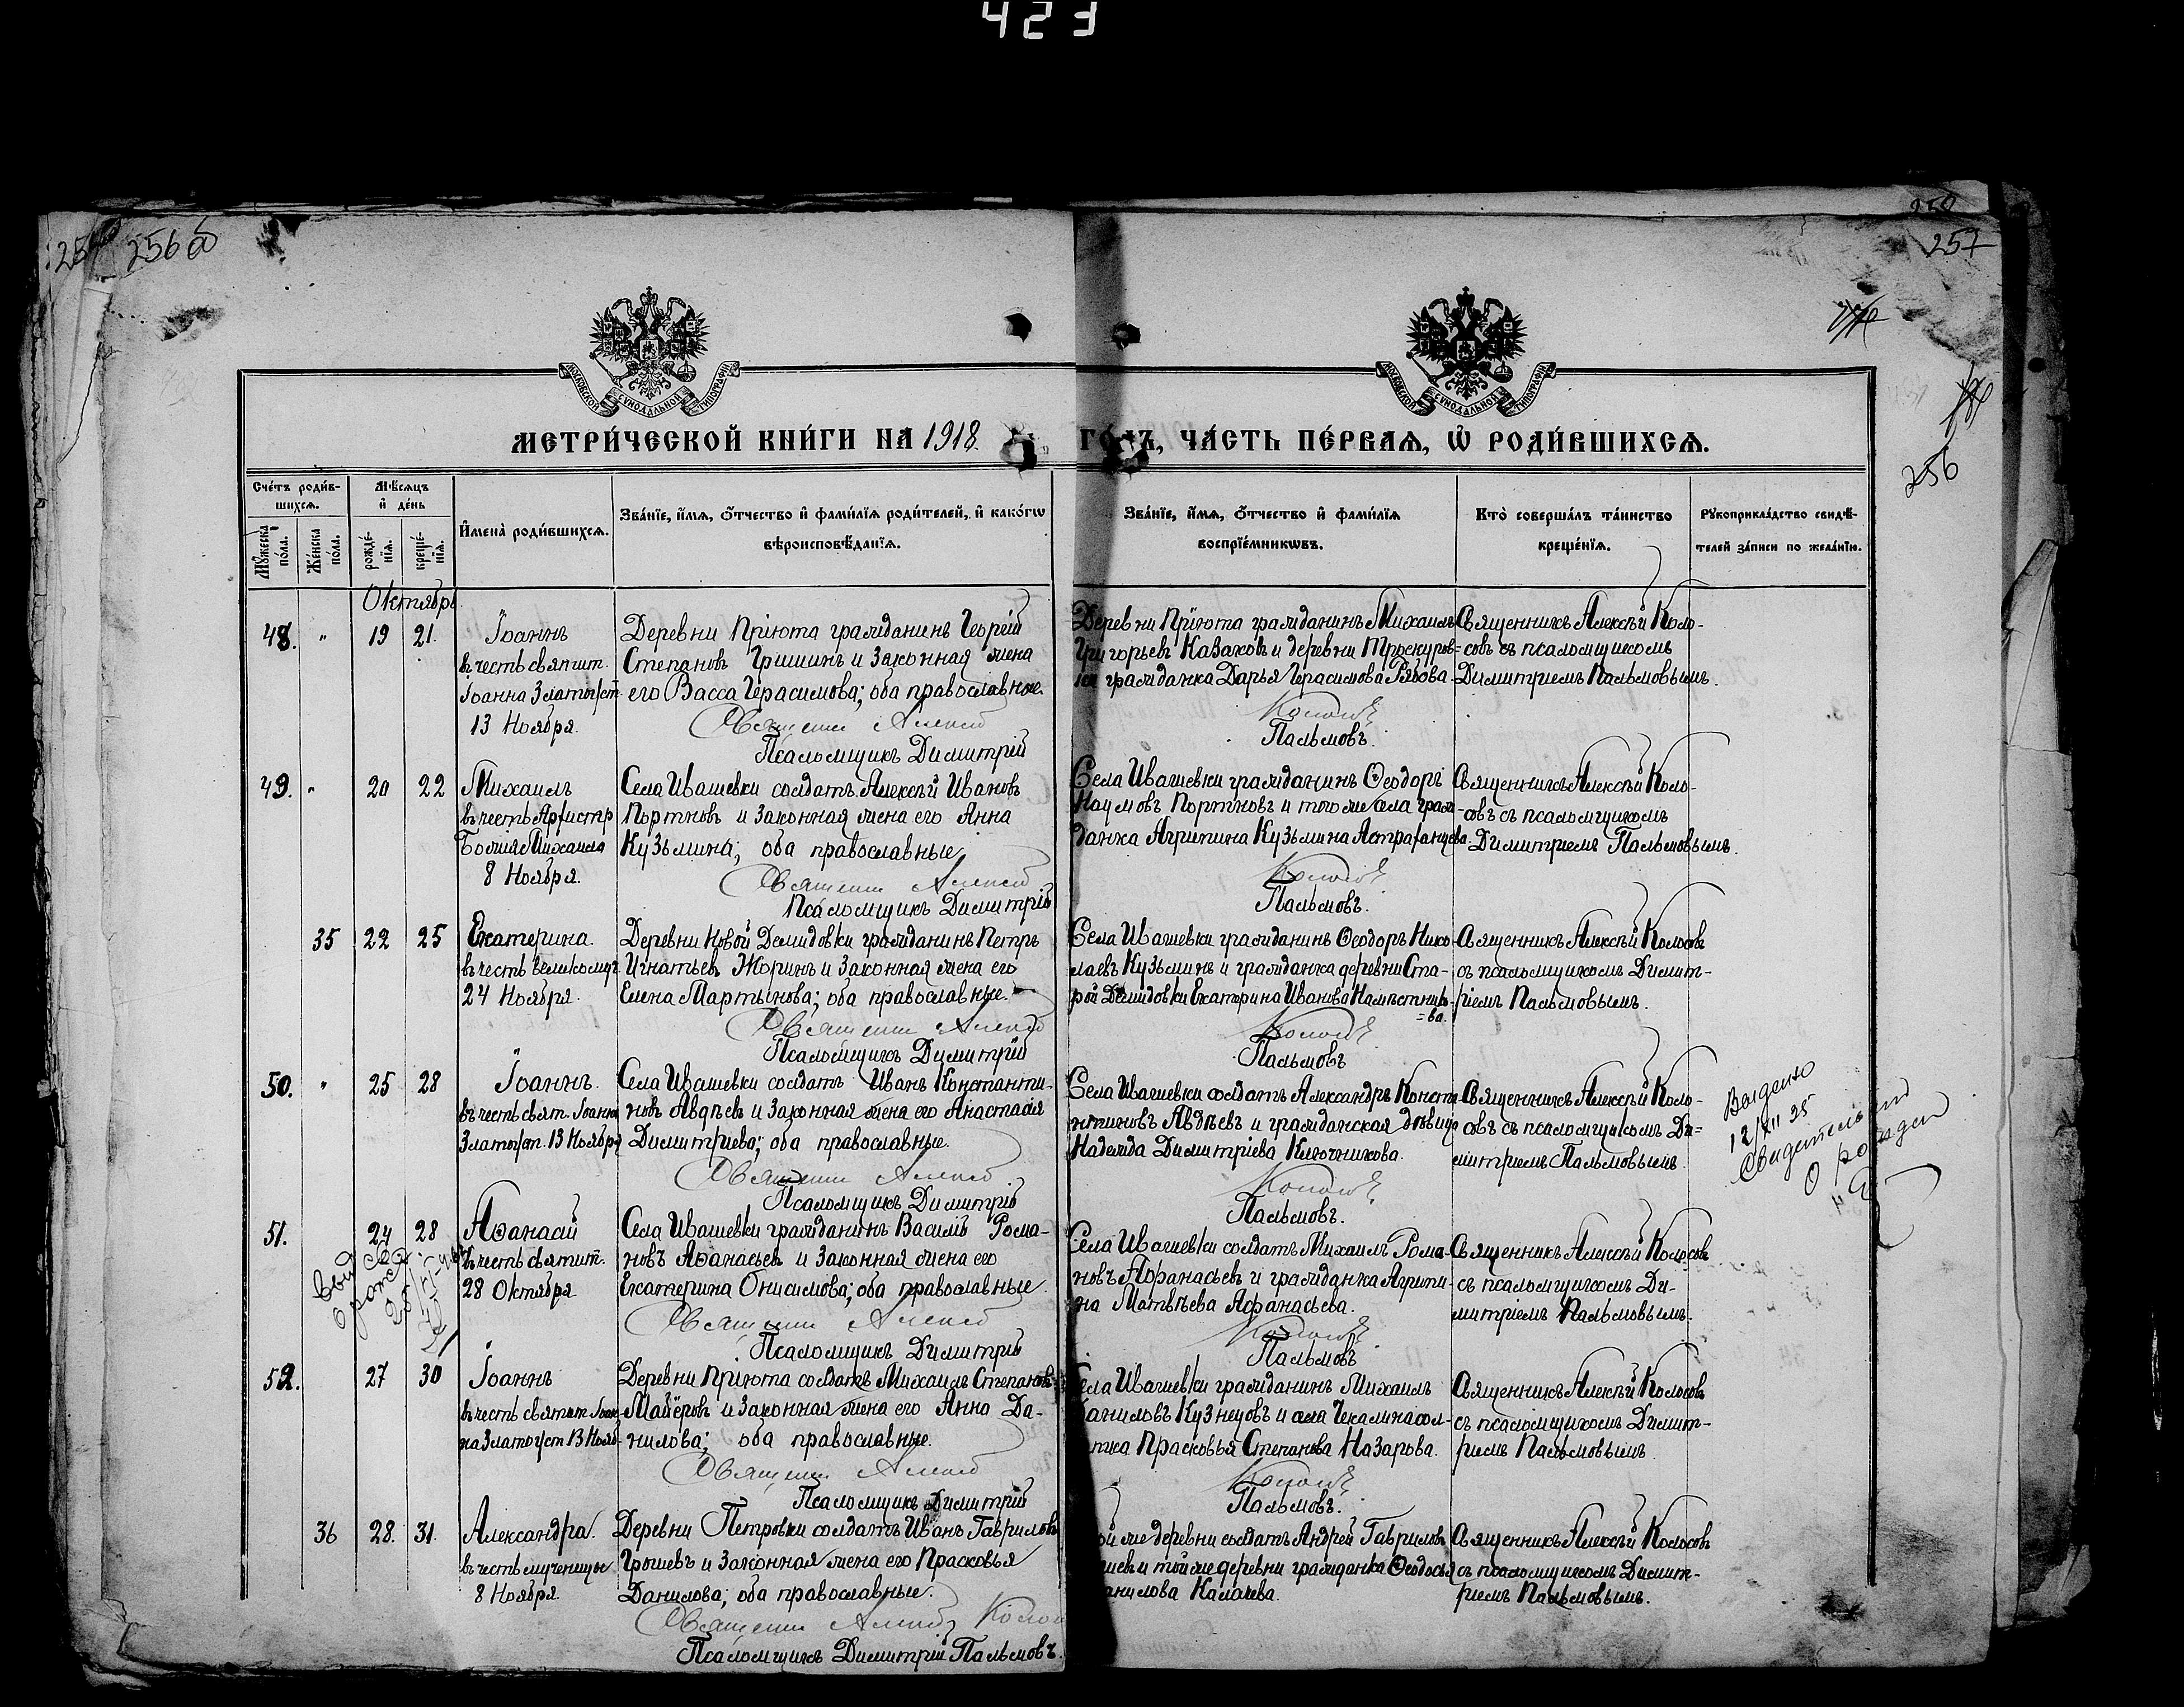 423
256 об
257
256
МОСКОВСКОЙ СѴНОДАЛЬНОЙ ТИПОГРАФІИ
МОСКОВСКОЙ СѴНОДАЛЬНОЙ ТИПОГРАФІИ
МЕТРИ́ЧЕСКОЙ КНИ́ГИ НА 1918 ГО́ДЪ, ЧА́СТЬ ПЕ́РВАѦ, Ѡ҆ РОДИ́ВШИХСѦ.
Сче́тъ роди́в-
шихсѧ.
Мꙋ́жеска по́ла.
Же́нска по́ла.
Мѣ́сѧцъ
и҆ де́нь
рожде́-
нїѧ.
креще́-
нїѧ.
И҆мена̀ роди́вшихсѧ.
Зва́нїе, и҆́мѧ, ѻ҆́тчество и҆ фами́лїѧ роди́телей, и҆ како́гѡ
вѣроисповѣ́данїѧ.
Зва́нїе, и҆́мѧ, ѻ҆́тчество и҆ фами́лїѧ
воспрїе́мникѡвъ.
Кто̀ соверша́лъ та́инство
креще́нїѧ.
Рꙋкоприкла́дство свидѣ́-
телей за́писи по жела́нїю.
Октябрь
48. " 19 21.
Іоаннъ
въ честь святит.
Іоанна Златоуст
13 Ноября.
Деревни Пріюта гражданинъ Георгій
Степановъ Гришинъ и законная жена
его Васса Герасимова; оба православные.
Священн Алексѣй
Псаломщикъ Димитрій
Деревни Пріюта гражданинъ Михаилъ
Григорьевъ Казаковъ и деревни Проскуров-
гражданка Дарья Герасимова Рябова
Колосовъ
Пальмовъ.
Священникъ Алексѣй Коло-
совъ съ псаломщикомъ
Димитріемъ Пальмовымъ.
49. " 20 22
Михаилъ
въ честь Архистр
Божія Михаила
8 Ноября.
Села Ивашевки солдатъ Алексѣй Ивановъ
Портновъ и законная жена его Анна
Кузьмина; оба православные
Священн Алексѣй
Псаломщикъ Димитрій
Села Ивашевки гражданинъ Ѳеодоръ
Наумовъ Портновъ и того же села граж-
данка Агрипина Кузьмина Астраханцева.
Колосовъ
Пальмовъ.
Священникъ Алексѣй Коло-
совъ съ псаломщикомъ
Димитріемъ Пальмовымъ.
35 22 25
Екатерина.
въ честь великомуч.
24 Ноября.
Деревни Новой Демидовки гражданинъ Петръ
Игнатьевъ Жоринъ и законная жена его
Елена Мартынова; оба православные.
Священн Алексѣй
Псаломщикъ Димитрій
Села Ивашевки гражданинъ Ѳеодоръ Нико-
лаевъ Кузьминъ и гражданка деревни Ста-
рой Демидовки Екатерина Иванова Намѣстнико-
=ва.
Колосовъ
Пальмовъ
Священникъ Алексѣй Колосовъ
съ псаломщикомъ Димит-
ріемъ Пальмовымъ.
50. " 25 28
Іоаннъ.
въ честь свят. Іоанна
Златоуст. 13 Ноября
Села Ивашевки солдатъ Иванъ Константи-
новъ Авдѣевъ и законная жена его Анастасія
Димитріева; оба православные.
Священн Алексѣй
Псаломщикъ Димитрій
Села Ивашевки солдатъ Александръ Конста-
нтиновъ Авдѣевъ и гражданская дѣвица
Надежда Димитріева Ключникова.
Колосовъ
Пальмовъ.
Священникъ Алексѣй Коло-
совъ съ псаломщикомъ Ди=
митріемъ Пальмовымъ.
Выдено
12/XII 25
Свидетельство
О рожден
51. 24 28
Аѳанасій
въ честь святит.
28 Октября
Села Ивашевки гражданинъ Василій Рома-
новъ Аѳанасьевъ и законная жена его
Екатерина Онисимова; оба православные.
Священн Алексѣй
Псаломщикъ Димитрій
Села Ивашевки солдатъ Михаилъ Рома-
новъ Афанасьевъ и гражданка Агрипи-
на Матвѣева Афанасьева.
Колосовъ
Пальмовъ
Священникъ Алексѣй Колосовъ
съ псаломщикомъ Ди-
митріемъ Пальмовымъ.
52. 27 30
Іоаннъ
въ честь святит. Іоан-
на Златоуст 13 Нояб.
Деревни Пріюта солдатъ Михаилъ Степановъ
Майёровъ и законная жена его Анна Да-
нилова; оба православные.
Священн Алексѣй
Псаломщикъ Димитрій
Села Ивашевки гражданинъ Михаилъ
Даниловъ Кузнецовъ и села Чекалина сол-
Прасковья Степанова Назарова.
Колосовъ
Пальмовъ.
Священникъ Алексѣй Колосовъ
съ псаломщикомъ Димит-
ріемъ Пальмовымъ
36 28. 31.
Александра.
въ честь мученицы
8 Ноября.
Деревни Петровки солдатъ Иванъ Гавриловъ
Грошевъ и законная жена его Прасковья
Данилова; оба православные.
Священн Алексѣй Колосовъ
Псаломщикъ Димитрій Пальмовъ.
той же деревни солдатъ Андрей Гавриловъ
и той же деревни гражданка Ѳеодосья
Данилова Калачева.
Священникъ Алексѣй Колосовъ
съ псаломщикомъ Димит-
ріемъ Пальмовымъ.